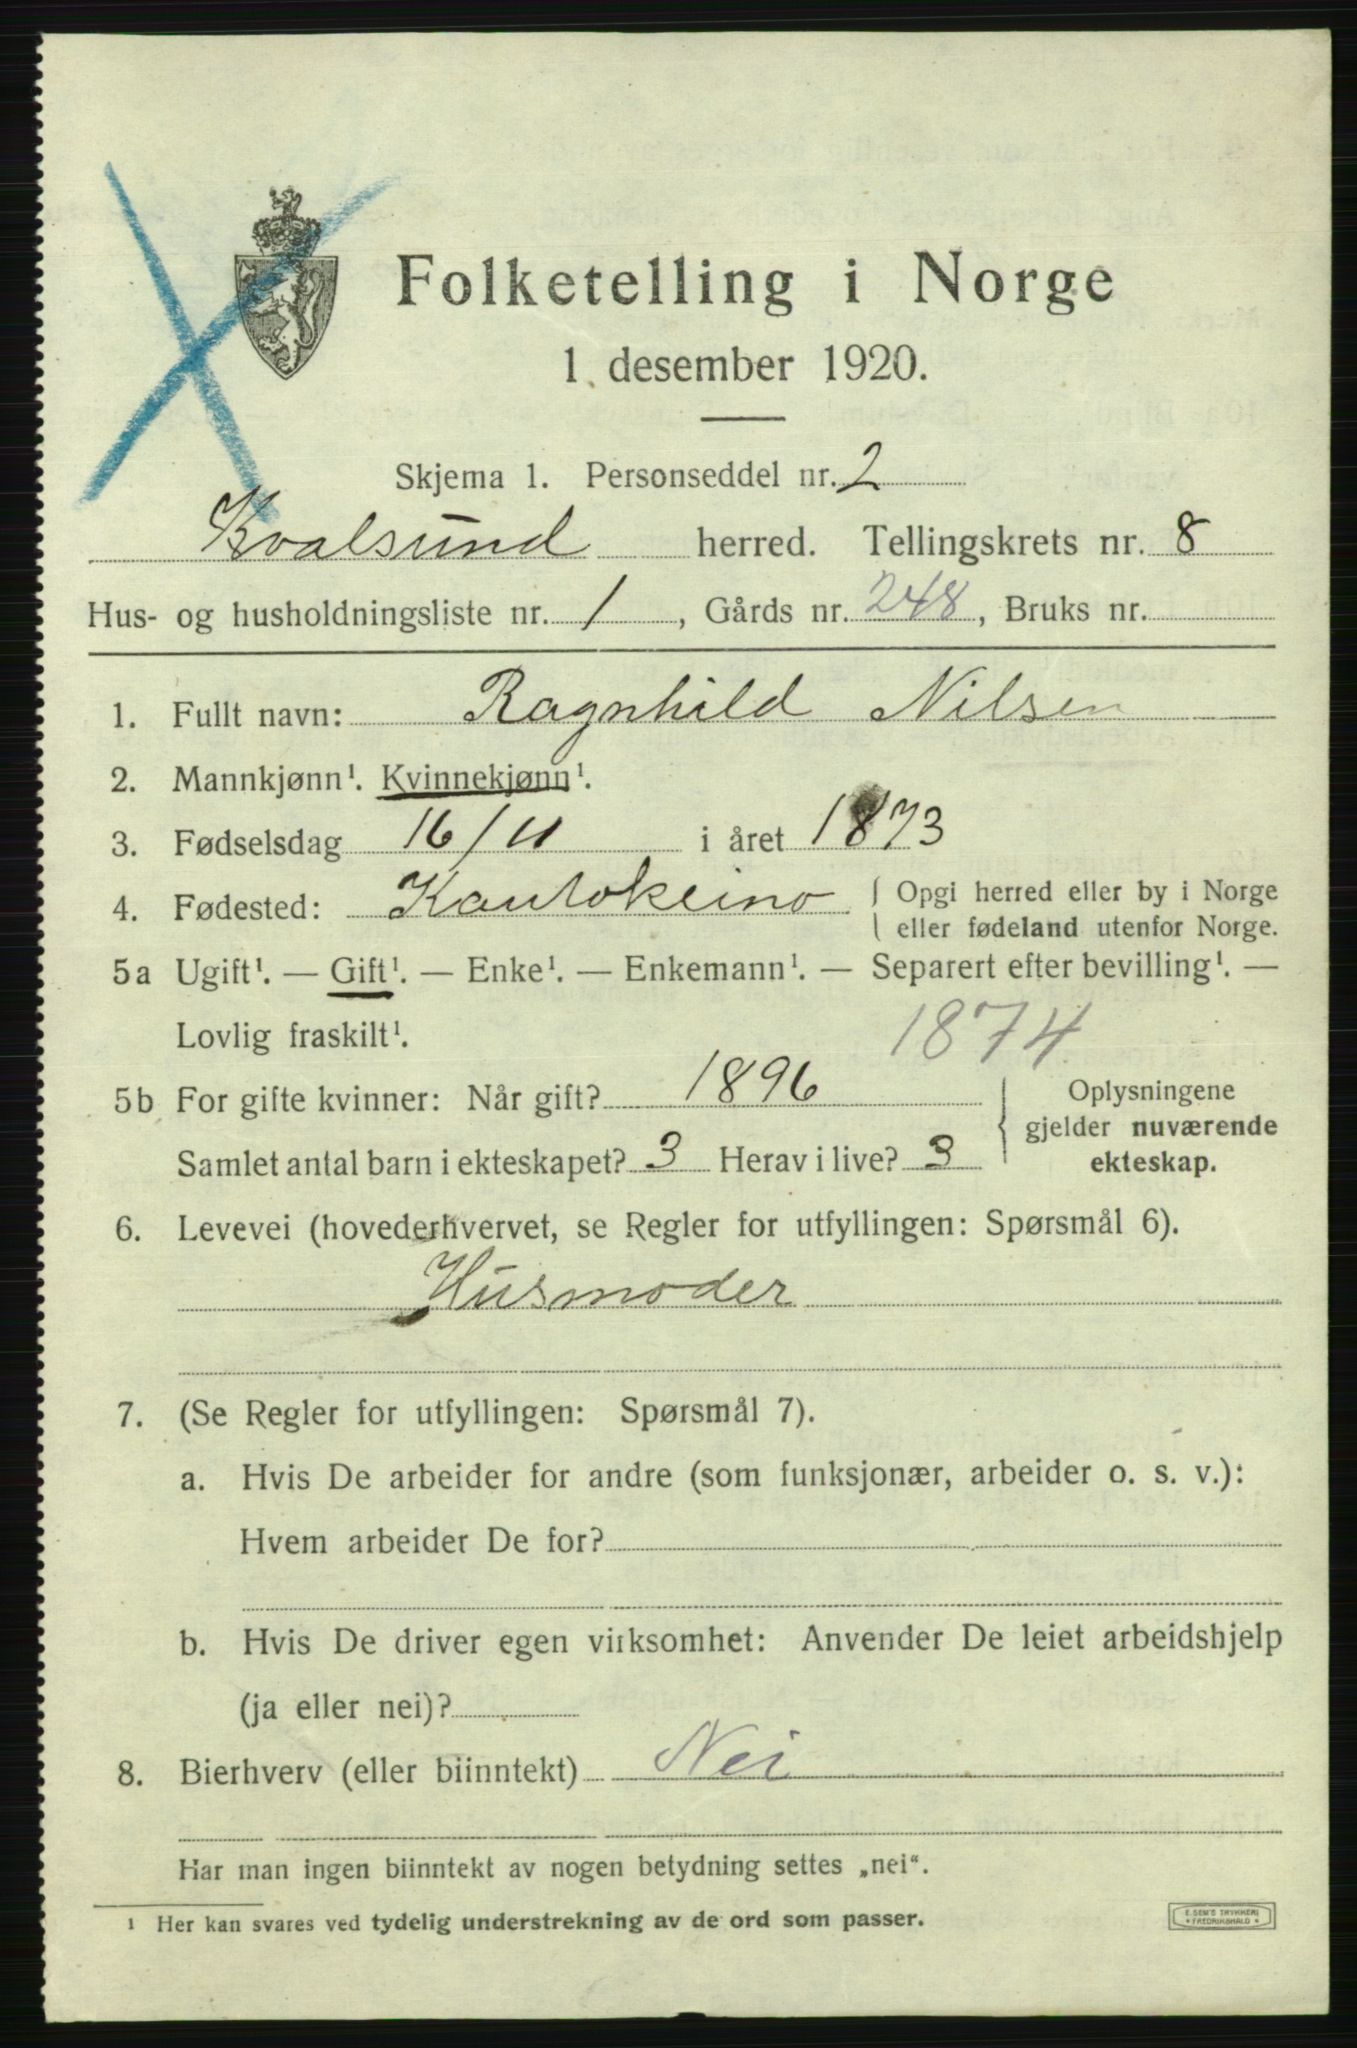 Folketelling i Norge
1. desember 1920.
Skjema 1. Personseddel nr. 2
Kvalsund herred. Tellingskrets nr. 8
Hus- og husholdningsliste nr. 1, Gårds nr. 248, Bruks nr.
1. Fullt navn: Ragnhild Nilsen
2. Mannkjønn¹. Kvinnekjønn¹.
3. Fødselsdag 16/11 i året 1873
4. Fødested: Kautokeino { Opgi herred eller by i Norge
eller fødeland utenfor Norge.
5a Ugift¹. — Gift¹. — Enke¹. — Enkemann¹. — Separert efter bevilling¹. —
Lovlig fraskilt¹. 1874
5b For gifte kvinner: Når gift? 1896
Samlet antal barn i ekteskapet? 3 Herav i live? 3
Oplysningene
gjelder nuværende
ekteskap.
6. Levevei (hovederhvervet, se Regler for utfyllingen: Spørsmål 6).
Husmoder
7. (Se Regler for utfyllingen: Spørsmål 7).
a. Hvis De arbeider for andre (som funksjonær, arbeider o. s. v.):
Hvem arbeider De for?
b. Hvis De driver egen virksomhet: Anvender De leiet arbeidshjelp
(ja eller nei)?
8. Bierhverv (eller biinntekt) Nei
Har man ingen biinntekt av nogen betydning settes „nei“.
¹ Her kan svares ved tydelig understrekning av de ord som passer.
E. SEM'S TRYKKERI
FREDRIKSHALD